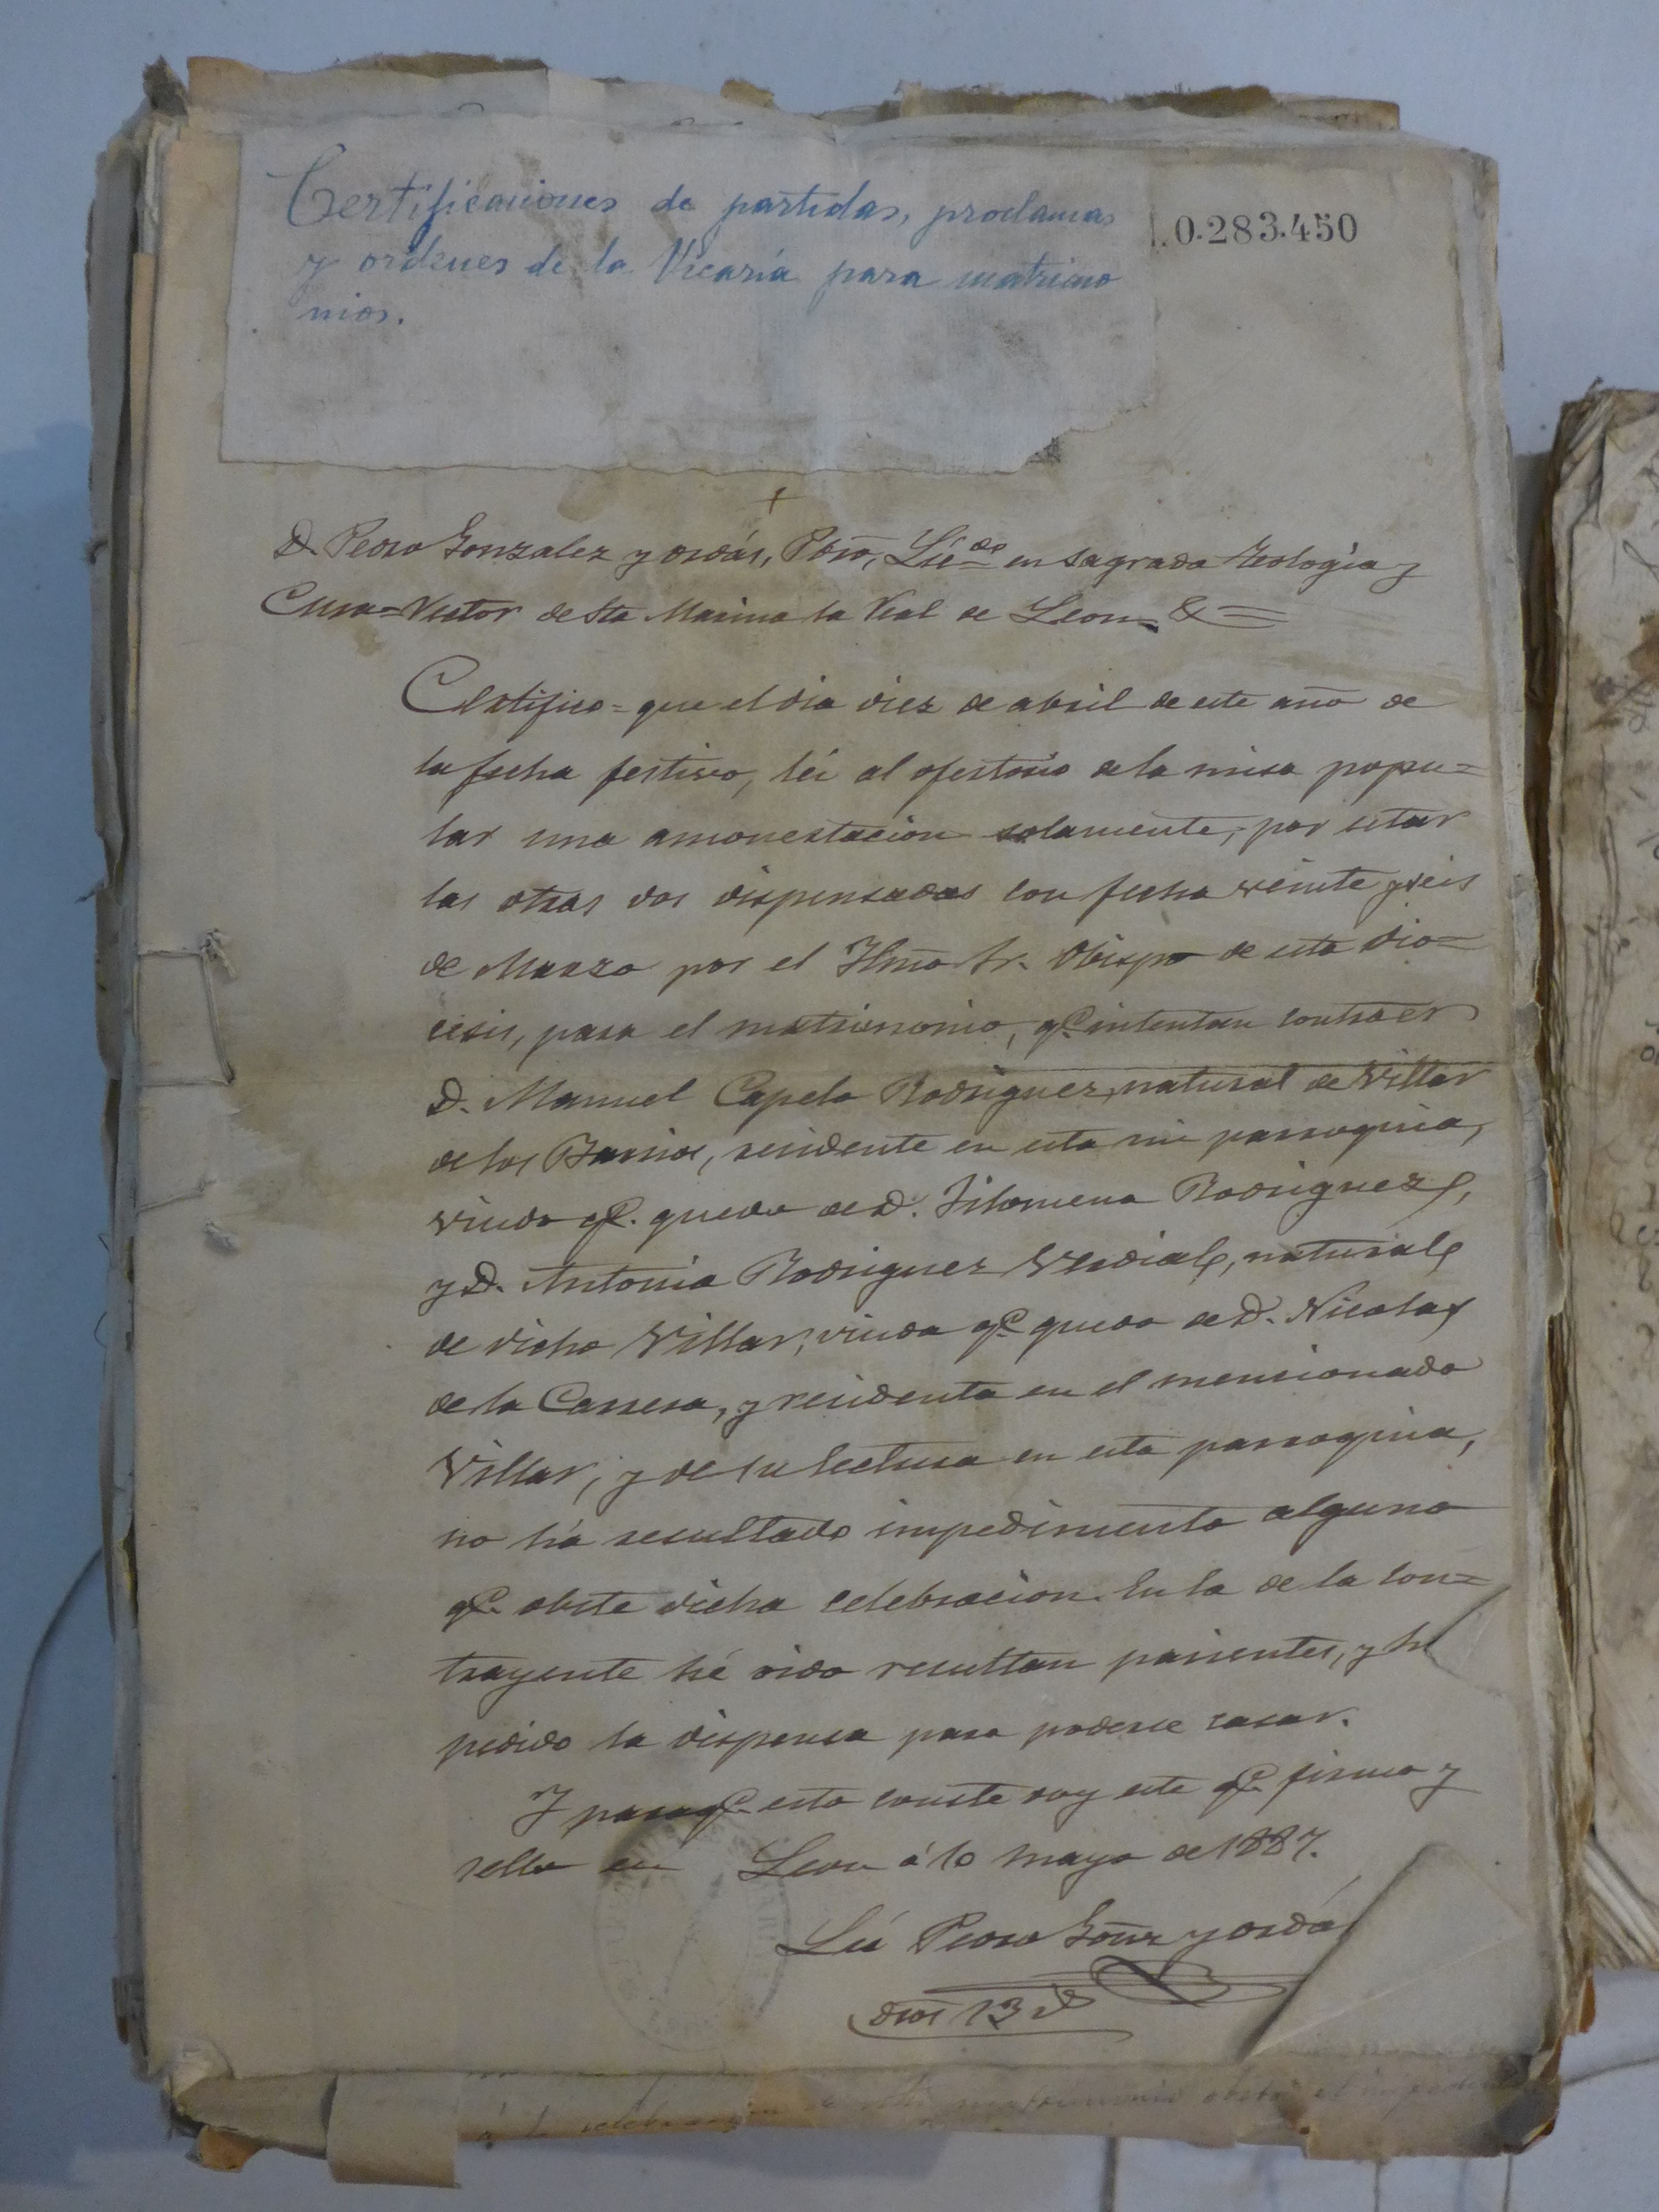 Certificaciones de partidas, proclamas
y ordenes de la Vicaría para matrimo
nios.
0.283.450
D. Pedro Gonzalez y Ordás, Pbro, Licdo en Sagrada Teología y
Cura=Rector de Sta Marina la Real de Leon &=
Certifico=que el dia diez de abril de este año de
la fecha festivo, léi al ofertorio de la misa popu=
lar una amonestacion solamente, por estar
las otras dos dispensadas con fecha veinte y seis
de Marzo por el Ilmo Sr. Obispo de esta dio=
cesis, para el matrimonio, qe intentan contraer
D. Manuel Capelo Rodriguez, natural de Villar
de los Barrios, residente en esta mi parroquia,
viudo qe. quedo de D. Filomena Rodriguez,
y D. Antonia Rodriguez Verdial, natural
de dicho Villar, viuda qe quedo de D. Nicolas
de la Carrera, y residenta en el mencionado
Villar, y de su lectura en esta parroquia,
no há resultado impedimento alguno
qe. obste dicha celebracion. En la de la con=
trayente hé oido resultan parientes, y h
pedido la dispensa para poderse casar.
Y para qe. esto conste doy este qe. firmo y
sello en Leon á 10 mayo de 1887.
Lic Pedro Gonz y Ordás
dros 13 r